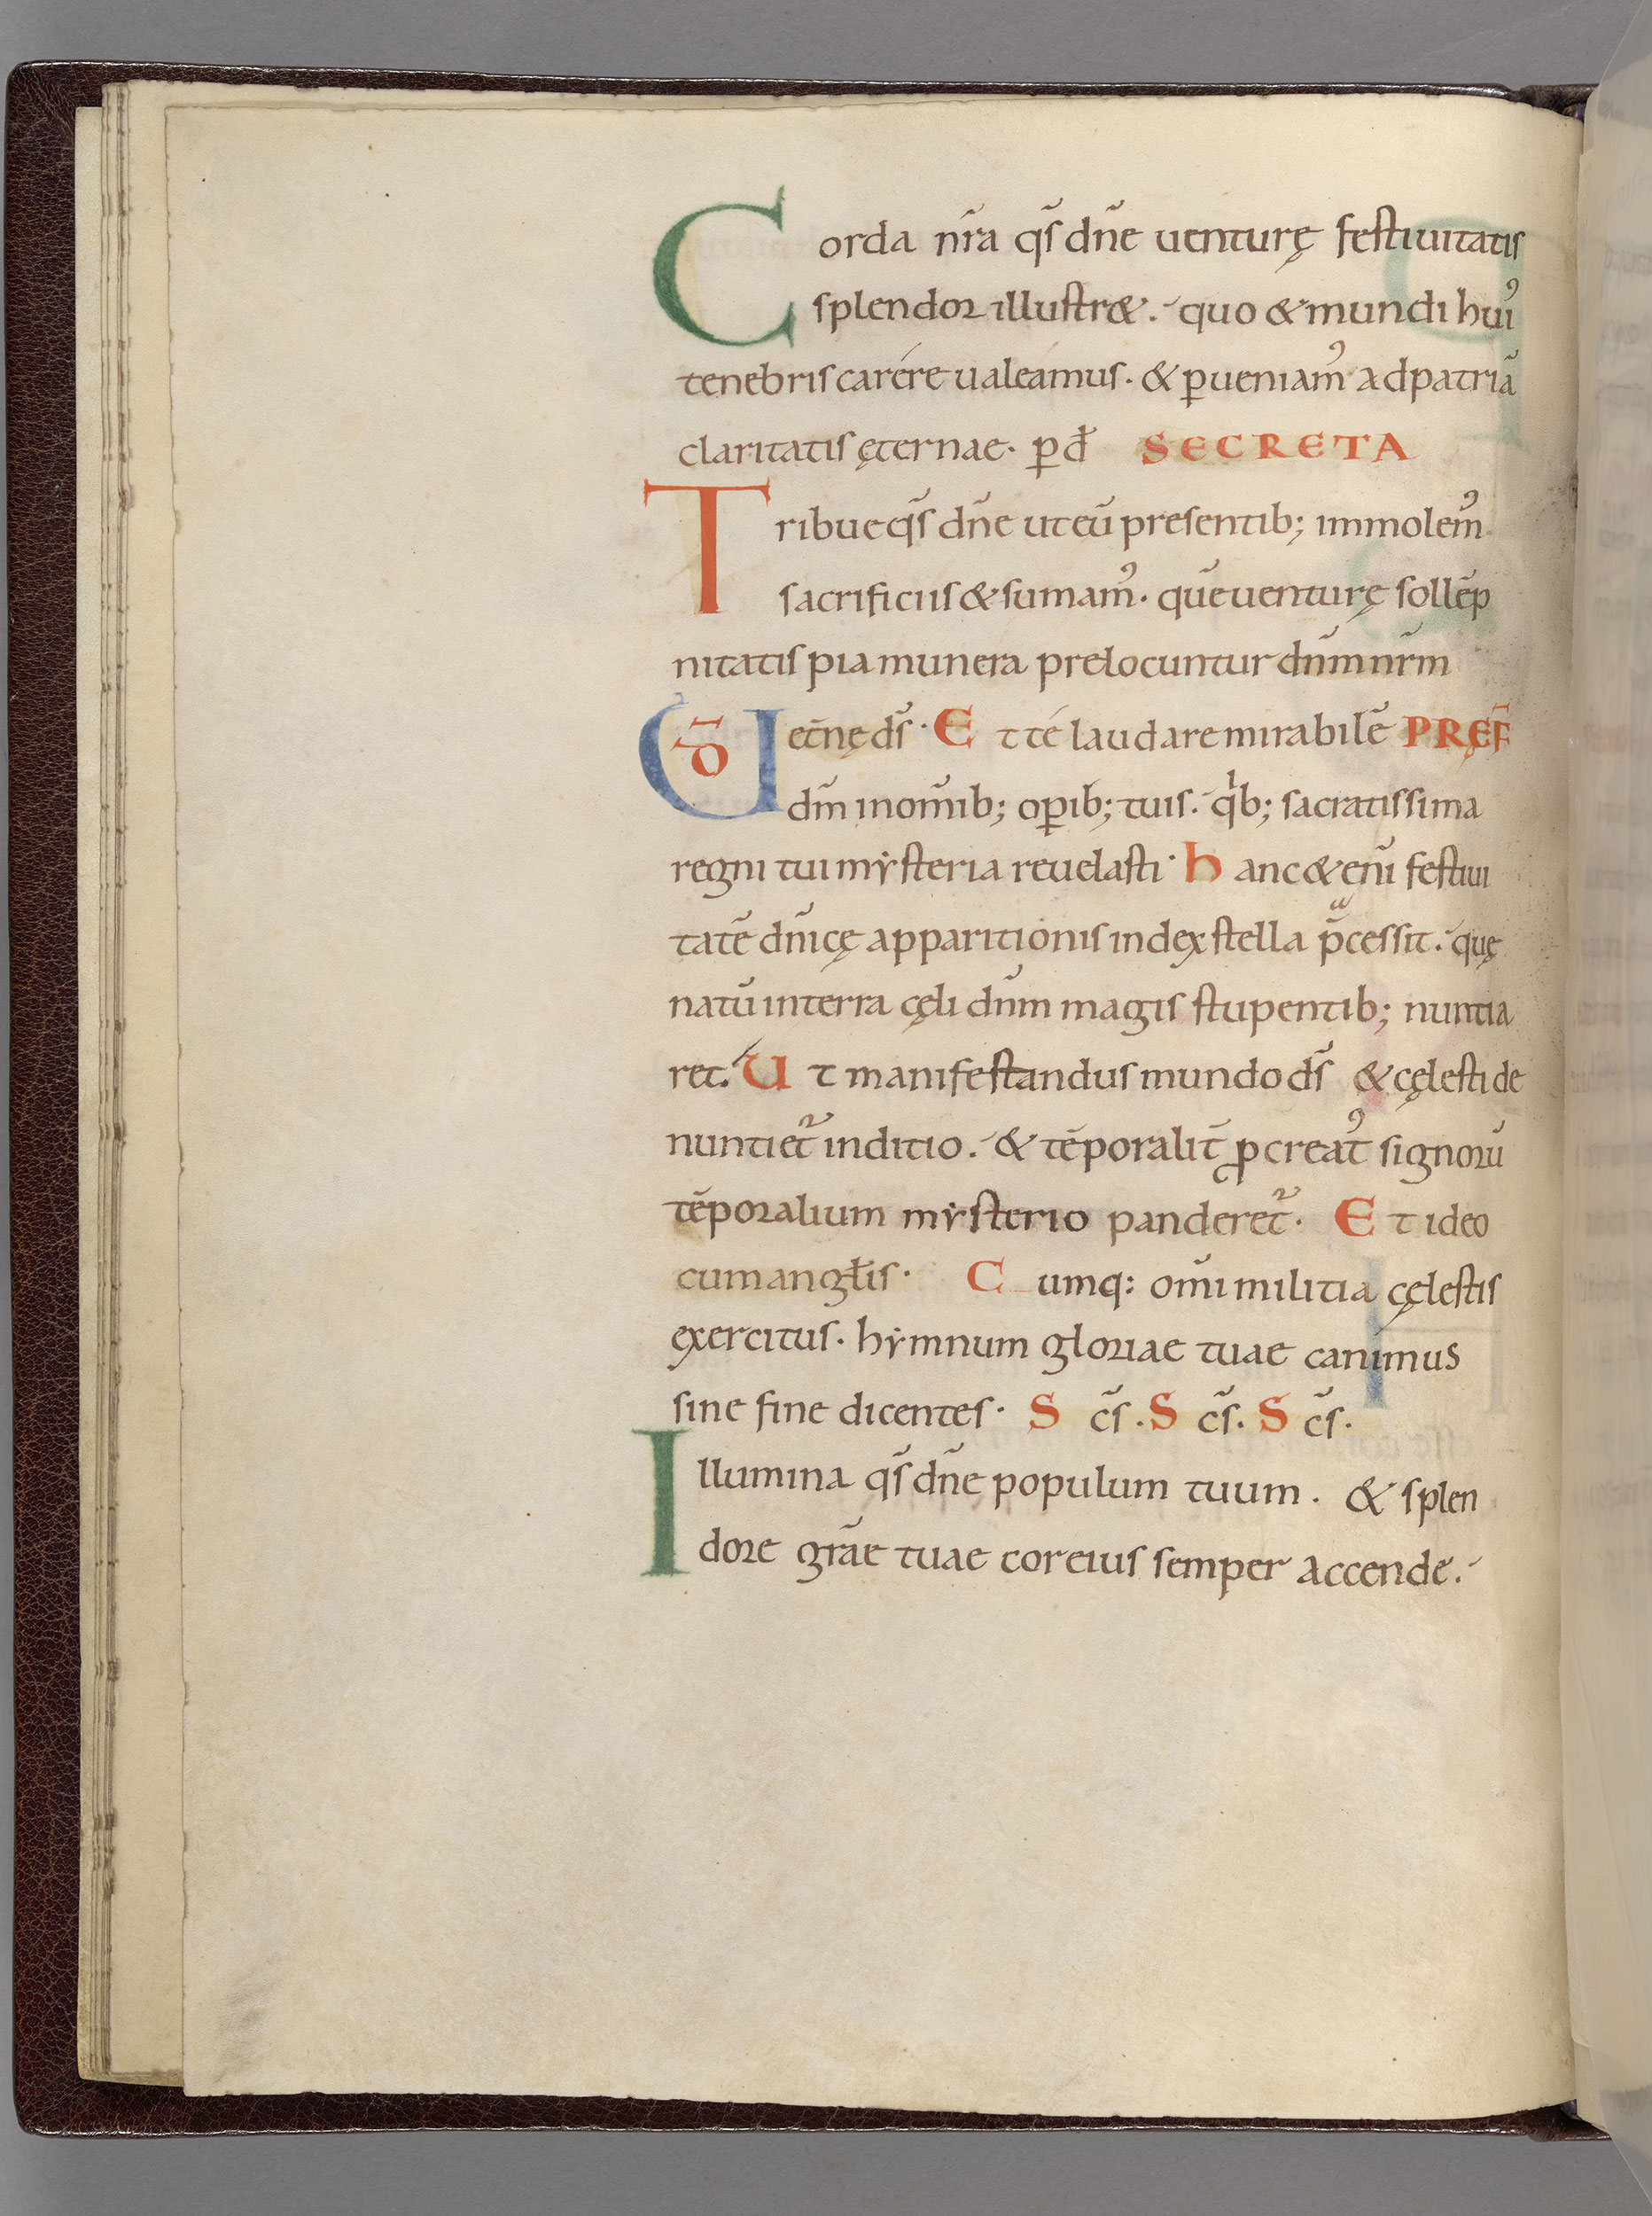 Corda nr̄a qs̄ dn̄e uenturę festiuitatis
splendor illustr&. quo & mundi huiꝰ
tenebris carére ualeámus. & ꝑueniamꝰ ad patriā
claritatis ęternae. ꝑ đ SECRETA
Tribue qs̄ dn̄e ut eū presentib; immolemꝰ
sacrificiis & sumamꝰ. quē uenturę sollēp
nitatis pia munera prelocuntur dn̄m nr̄m
UD̄ et̄nę ds̄. Et té laudare mirabilē PRĘF̄
dm̄ in om̄ib; oꝑib; tuis. qⁱb; sacratissima
regni tui mẏsteria reuelasti. hanc & eni̅ festiui
tatē dn̄icę apparitionis index stella p̄cessit. quę
natū in terra cęli dn̄m magis stupentib; nuntia
ret. Ut manifestandus mundo ds̄ & cęlesti de
nuntiet᷑ inditio. & tēporalit̄ ꝓcreatꝰ signorū
tēporalium mẏsterio panderet᷑. Et ideo
cum angƚis. Cumq: om̄i militia cęlestis
exercitus. hẏmnum gloriae tuae canimus
sine fine dicentes. Scs̄. Scs̄. Scs̄.
Illumina qs̄ dn̄e populum tuum. & splen
dore gr̄ae tuae cor eius semper accende.